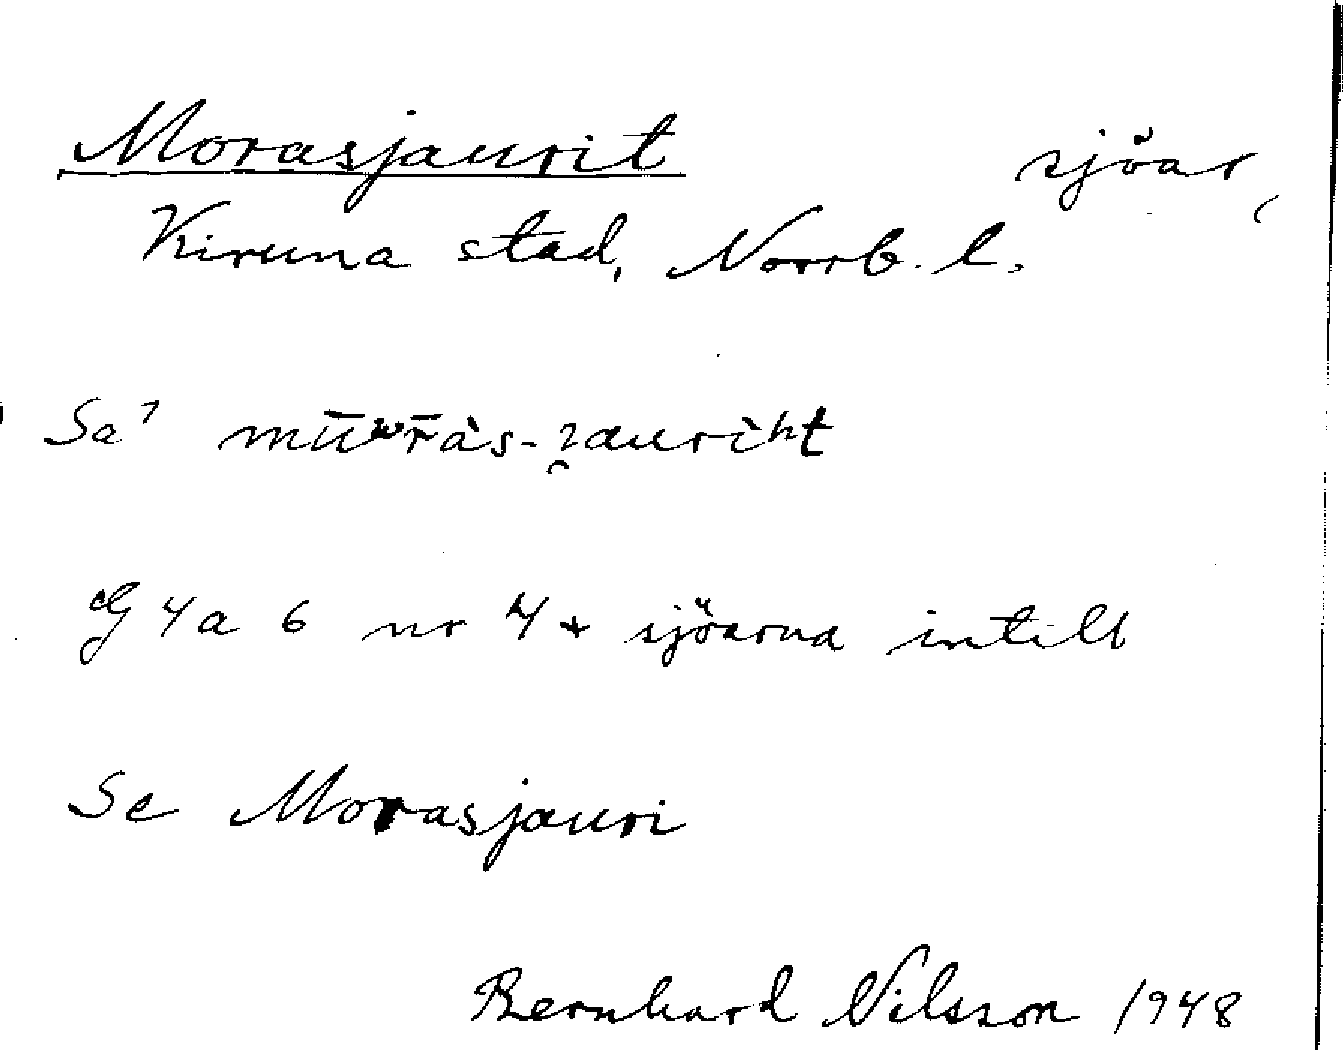 Morasjaurit sjöar,
Kiruna stad, Norrb. l.
G 4a 6 nr 4 + sjöarna intill
Se Morasjauri
Bernhard Nilsson 1948